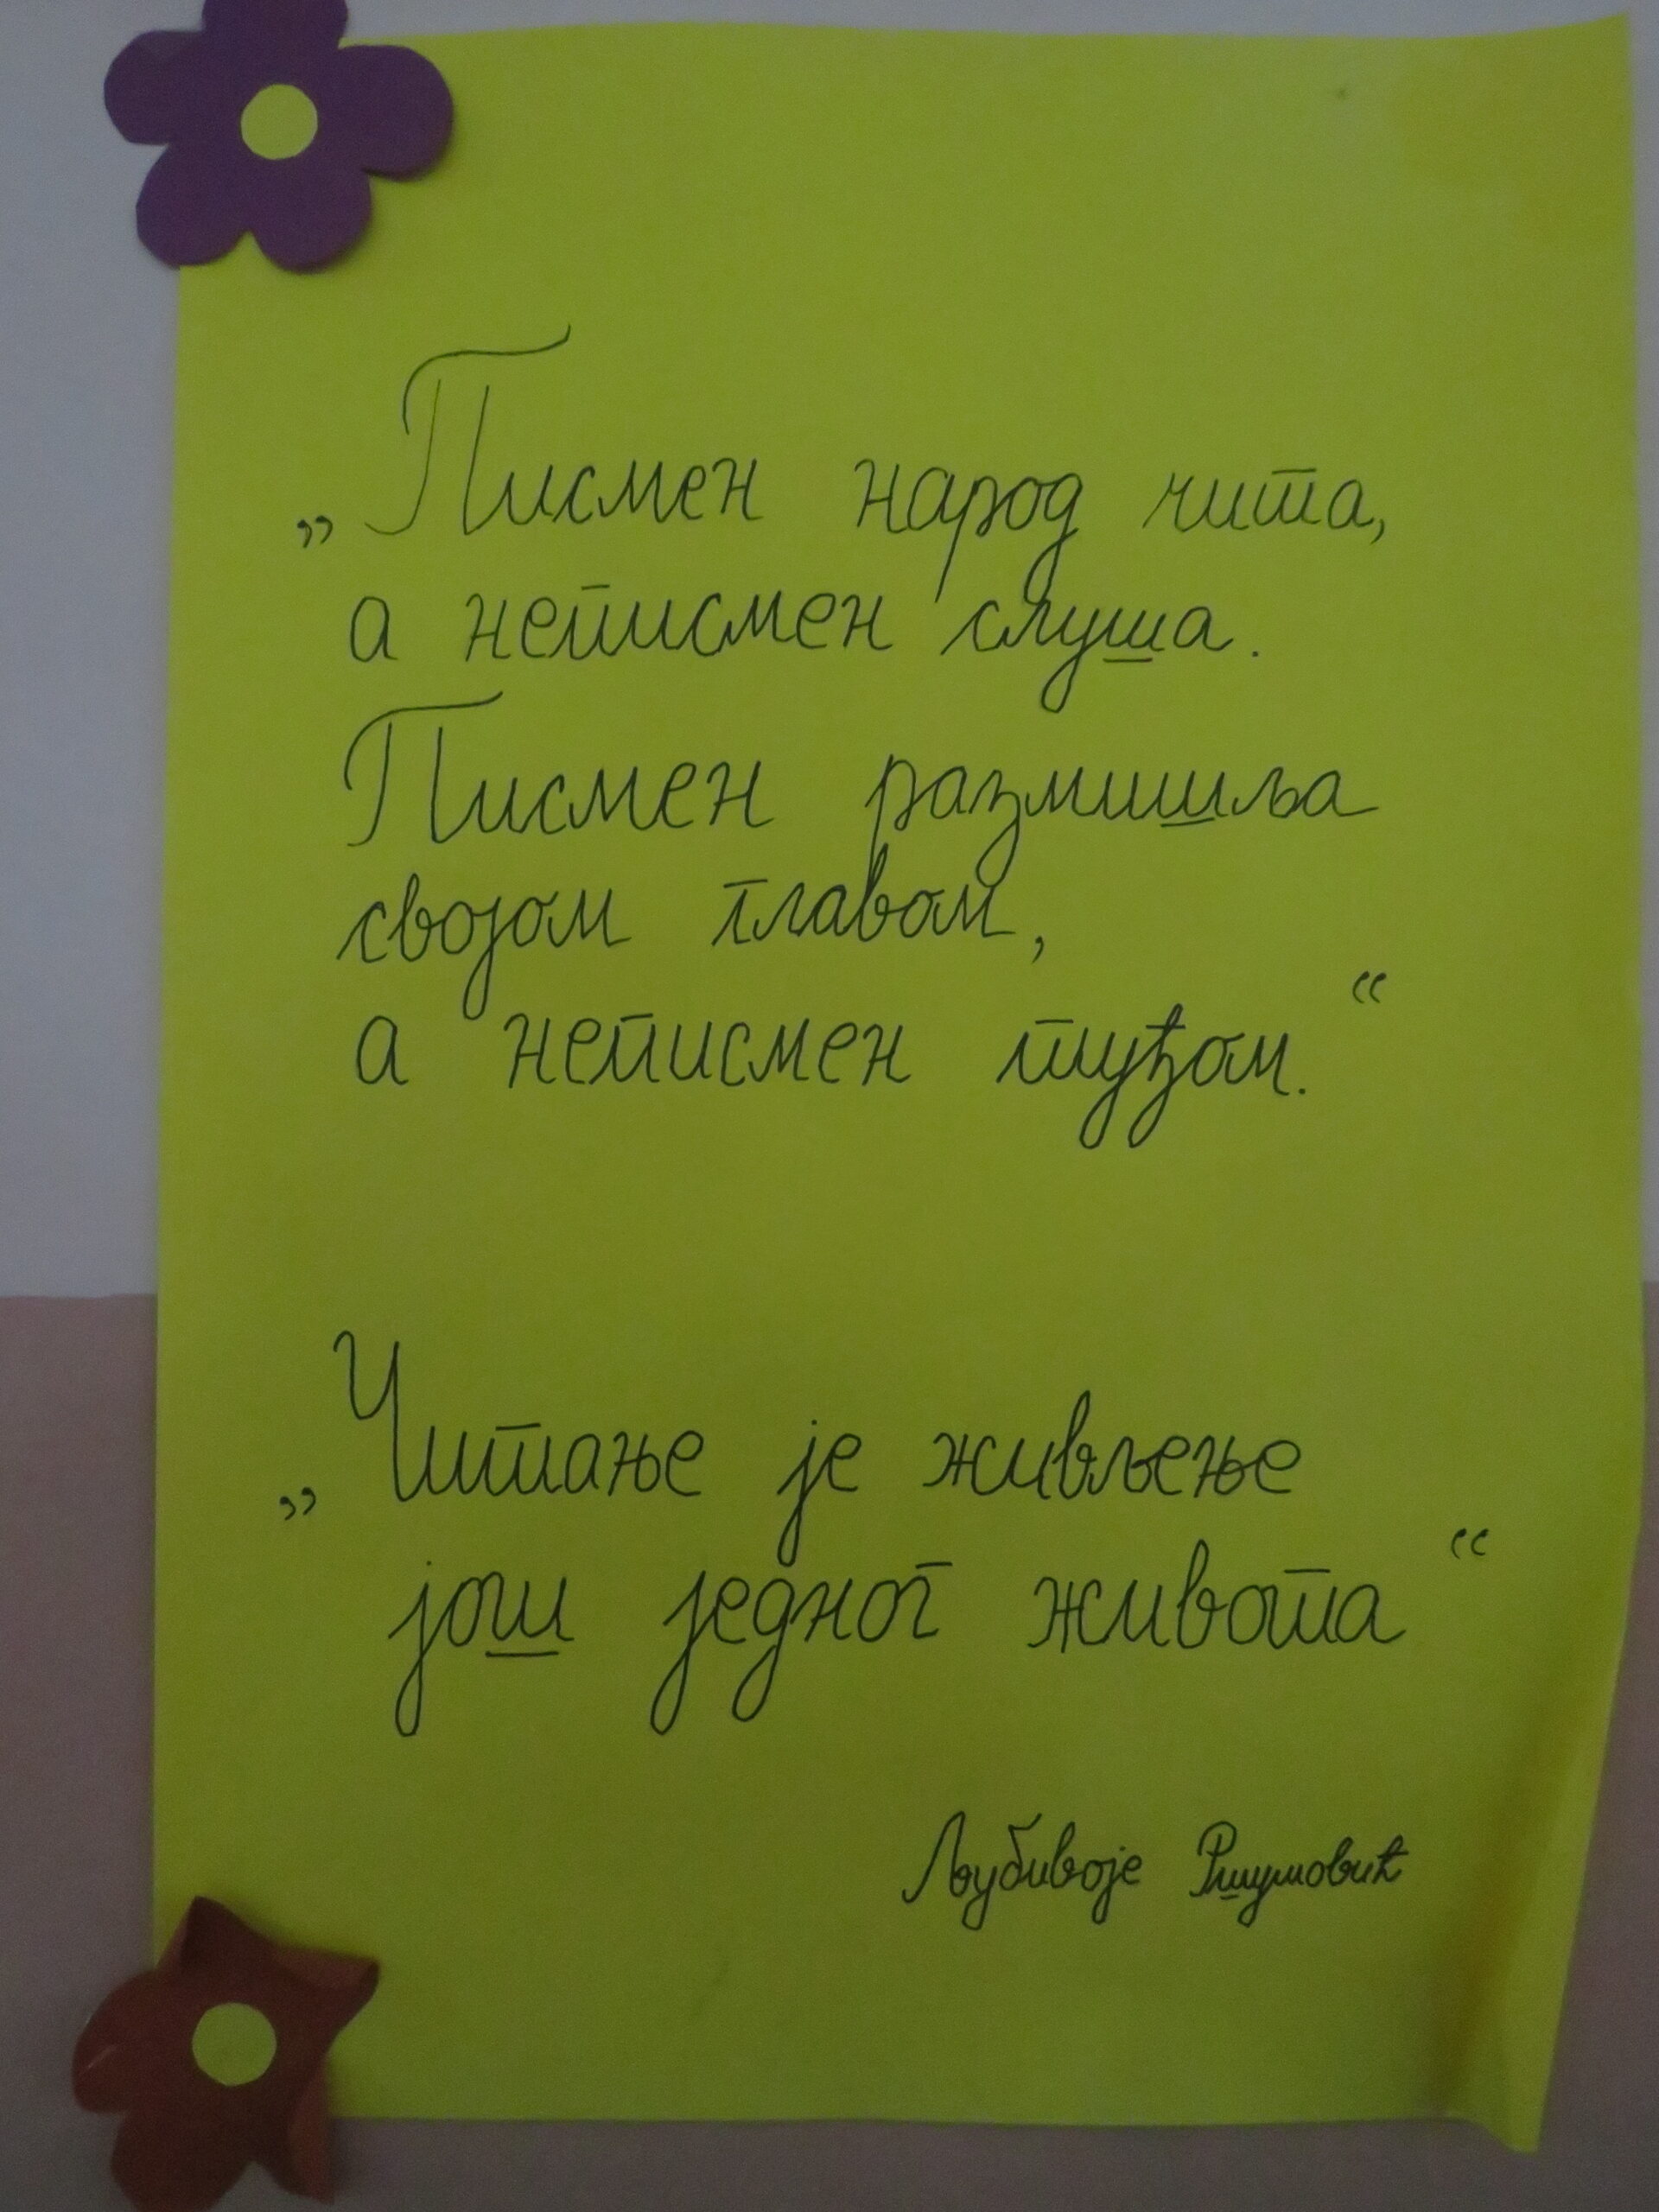 „Писмен народ чита,
а неписмен слуша.
Писмен размишља
својом главом,
а неписмен туђом.“
„Читање је живљење
још једног живота“
Љубивоје Ршумовић